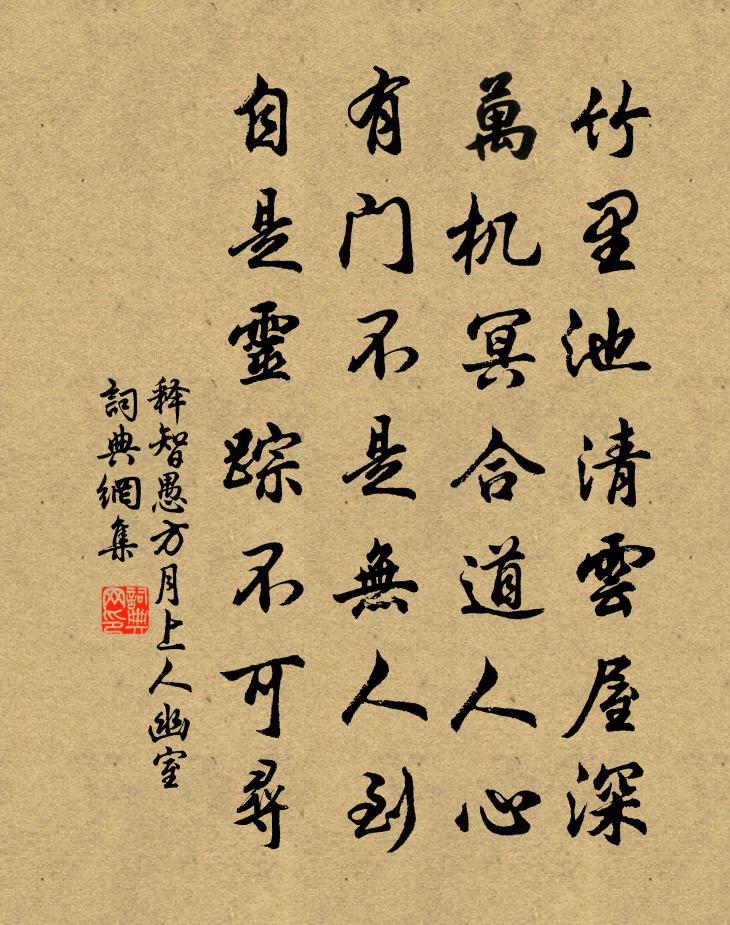 竹里池清雲屋深
萬机冥合道人心
有门不是無人到
自是靈踪不可尋
释智愚方月上人幽室
詞典網集
詞典
网印